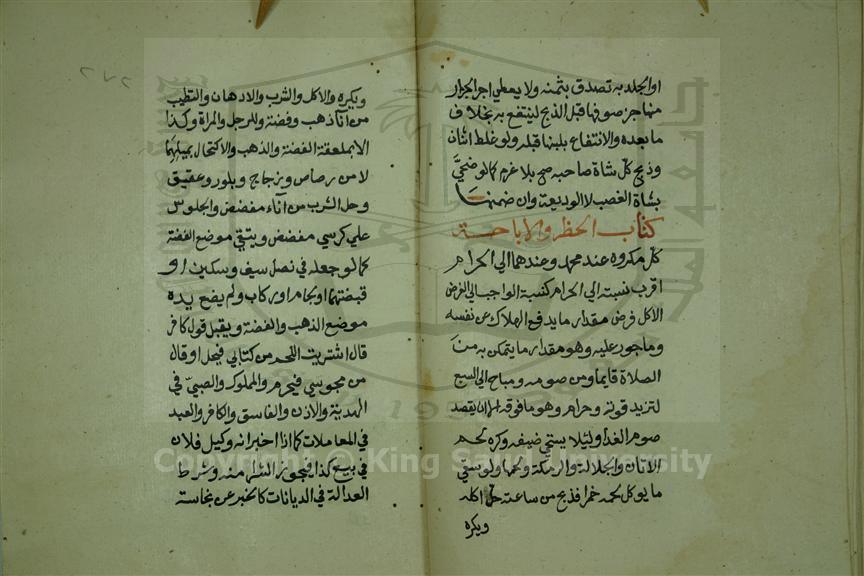 او الجلد به تصدق بثمنه ولا يعطي اجر الجزار
منها جز صوفها قبل الذبح لينتفع به بخلاف
ما بعده والانتفاع بلبنها قبله ولو غلط اثنان
وذبح كل شاة صاحبه صح بلا غرم كما لو ضحي
بشاة الغصب لا الوديعة وان ضمنها
كتاب الحظر والاباحة
كل مكروه عند محمد وعندهما الي الحرام
اقرب نسبته الي الحرام كنسبة الواجب الي الفرض
الاكل فرض مقدار ما يدفع الهلاك عن نفسه
وماجور عليه وهو مقدار ما يتمكن به من
الصلاة قايما ومن صومه ومباح الي الشبع
لتزيد قوته وحرام وهو ما فوقه الا ان يقصد
صوم الغد او ليلا يستحي ضيفه وكره لحم
الاتان والجلالة والرمكة ولحمها ولو سقي
ما يوكل لحمه خمرا فذبح من ساعته حل اكله
ويكره
٢٧٢
ويكره والاكل والشرب والادهان والتطيب
من اناذهب وفضة وللرجل والمراة وكذا
الابملعقة الفضة والذهب والاكتحال بميلهما
لا من رصاص وزجاج وبلور وعقيق
وحل الشرب من آناء مفضض والجلوس
علي كرسي مفضض ويتقي موضع الفضة
كما لو جعله في نصل سيف وسكين او
قبضتهما او لجام او ركاب ولم يضع يده
موضع الذهب والفضة ويقبل قول كافر
قال اشتريت اللحم من كتابي فيحل او قال
من مجوسي فيحرم والمملوك والصبي في
الهدية والاذن والفاسق والكافر والعبد
في المعاملات كما اذا اخبر انه وكيل فلان
في بيع كذا فيجوز الشرا منه وشرط
العدالة في الديانات كالخبر عن نجاسة
Copyright © King Saud University
1957